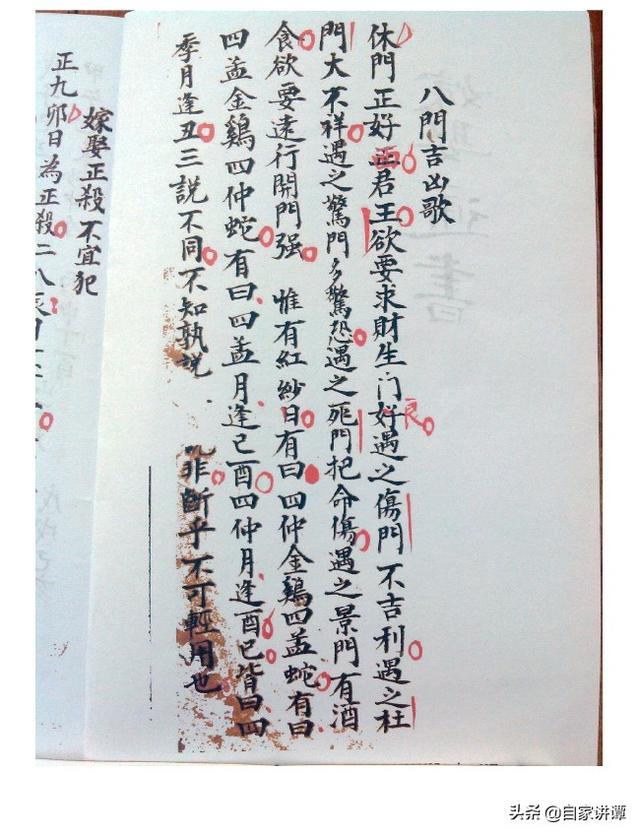 八門吉凶歌
休門正好面君王欲要求財生门好良遇之傷門不吉利遇之杜
門大不祥遇之驚門多驚恐遇之死門把命傷遇之景門有酒
食欲要遠行開門强 惟有紅紗日有曰四仲金鷄四孟蛇有曰
四孟金鷄四仲蛇有曰四孟月逢已酉四仲月逢酉巳皆曰四
季月逢丑三說不同不知孰說 非斷乎不可輕用也
嫁娶正殺不宜犯
正九卯日為正殺二八辰
头条 @自家讲谭